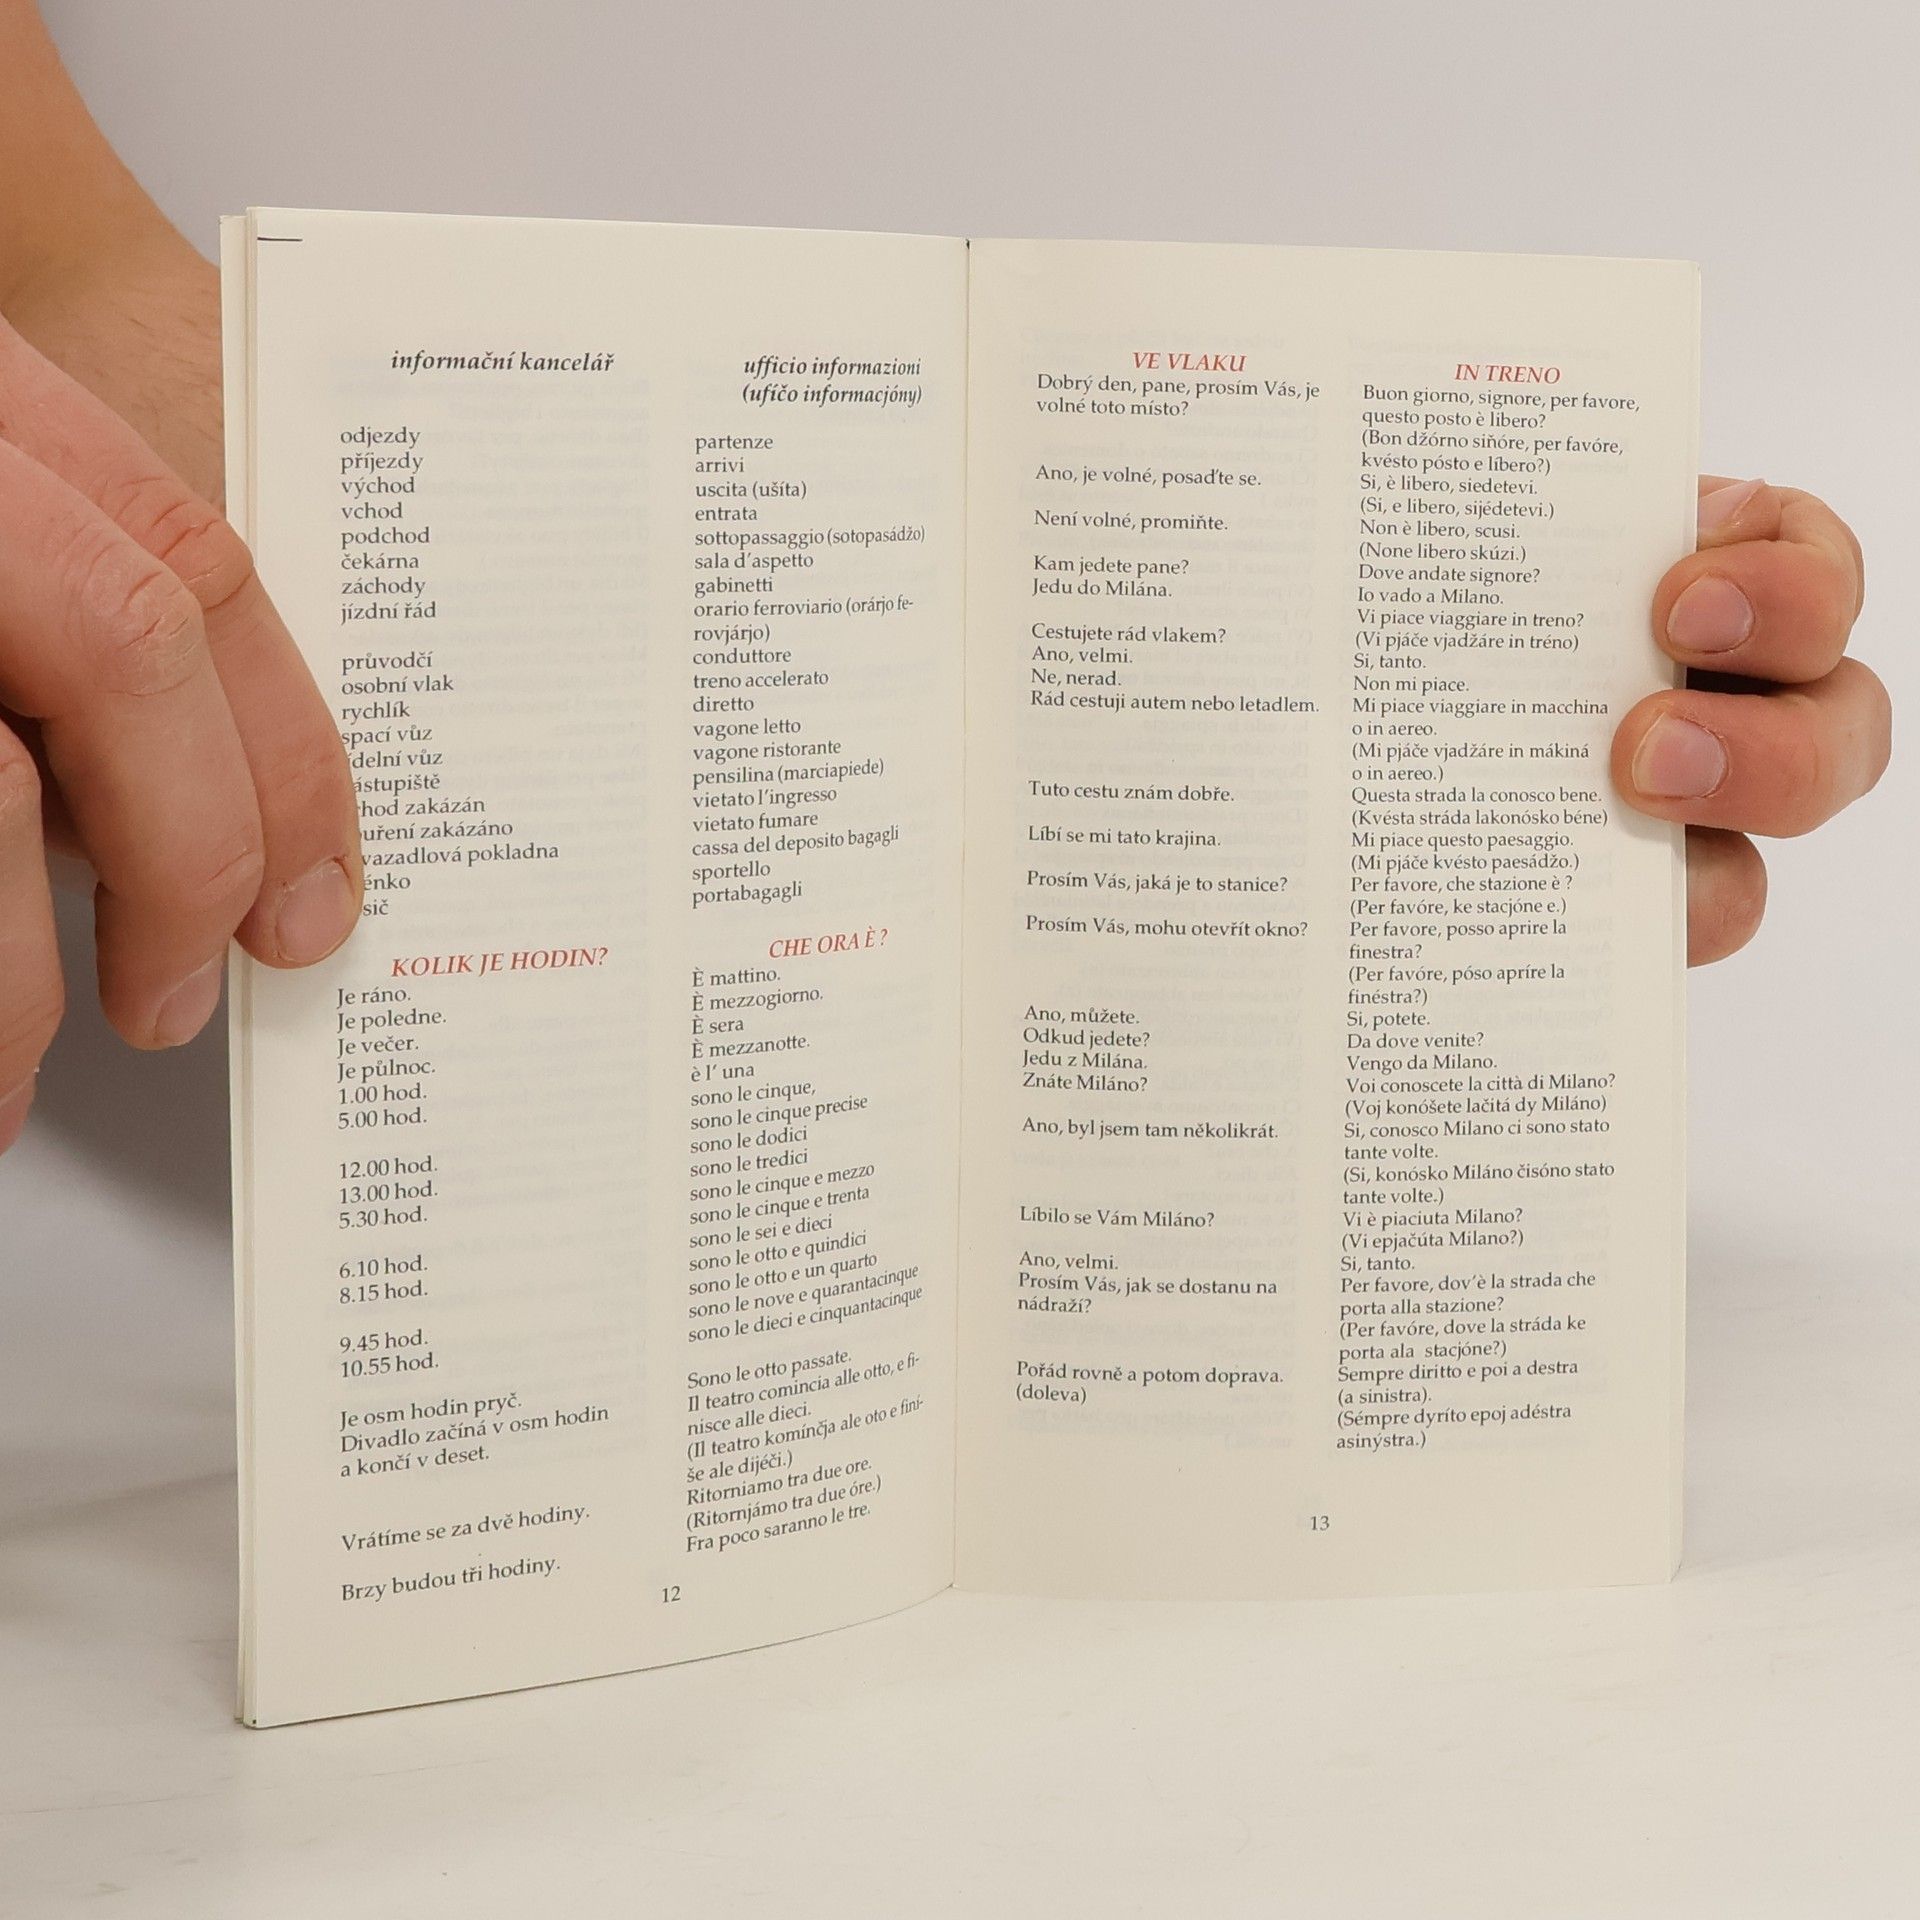 informační kancelář
odjezdy
příjezdy
východ
vchod
podchod
čekárna
záchody
jízdní řád
průvodčí
osobní vlak
rychlík
spací vůz
vůz
zakázán
zakázáno
pokladna
KOLIK JE HODIN?
Je ráno.
Je poledne.
Je večer.
Je půlnoc.
1.00 hod.
5.00 hod.
12.00 hod.
13.00 hod.
5.30 hod.
6.10 hod.
8.15 hod.
9.45 hod.
10.55 hod.
Je osm hodin pryč.
Divadlo začíná v osm hodin
a končí v deset.
Vrátíme se za dvě hodiny.
Brzy budou tři hodiny.
ufficio informazioni
(ufíčo informacjóny)
partenze
arrivi
uscita (ušíta)
entrata
sottopassaggio (sotopasádžo)
sala d'aspetto
gabinetti
orario ferroviario (orárjo fe-
rovjárjo)
conduttore
treno accelerato
diretto
vagone letto
vagone ristorante
pensilina (marciapiede)
vietato l'ingresso
vietato fumare
cassa del deposito bagagli
sportello
portabagagli
CHE ORA È ?
È mattino.
È mezzogiorno.
È sera
È mezzanotte.
è l' una
sono le cinque,
sono le cinque precise
sono le dodici
sono le tredici
sono le cinque e mezzo
sono le cinque e trenta
sono le sei e dieci
sono le otto e quindici
sono le otto e un quarto
sono le nove e quarantacinque
sono le dieci e cinquantacinque
Sono le otto passate.
Il teatro comincia alle otto, e fi-
nisce alle dieci.
(Il teatro komínčja ale oto e finí-
še ale dijéči.)
Ritorniamo tra due ore.
(Ritornjámo tra due óre.)
Fra poco saranno le tre.
12
VE VLAKU
Dobrý den, pane, prosím Vás, je
volné toto místo?
Ano, je volné, posaďte se.
Není volné, promiňte.
Kam jedete pane?
Jedu do Milána.
Cestujete rád vlakem?
Ano, velmi.
Ne, nerad.
Rád cestuji autem nebo letadlem.
Tuto cestu znám dobře.
Líbí se mi tato krajina.
Prosím Vás, jaká je to stanice?
Prosím Vás, mohu otevřít okno?
Ano, můžete.
Odkud jedete?
Jedu z Milána.
Znáte Miláno?
Ano, byl jsem tam několikrát.
Líbilo se Vám Miláno?
Ano, velmi.
Prosím Vás, jak se dostanu na
nádraží?
Pořád rovně a potom doprava.
(doleva)
IN TRENO
Buon giorno, signore, per favore,
questo posto è libero?
(Bon džórno siňóre, per favóre,
kvésto pósto e líbero?)
Si, è libero, siedetevi.
(Si, e líbero, sijédetevi.)
Non è libero, scusi.
(None libero skúzi.)
Dove andate signore?
Io vado a Milano.
Vi piace viaggiare in treno?
(Vi pjáče vjadžáre in tréno)
Si, tanto.
Non mi piace.
Mi piace viaggiare in macchina
o in aereo.
(Mi pjáče vjadžáre in mákiná
o in aereo.)
Questa strada la conosco bene.
(Kvésta stráda lakonósko béne)
Mi piace questo paesaggio.
(Mi pjáče kvésto paesádžo.)
Per favore, che stazione è ?
(Per favóre, ke stacjóne e.)
Per favore, posso aprire la
finestra?
(Per favóre, póso apríre la
finéstra?)
Si, potete.
Da dove venite?
Vengo da Milano.
Voi conoscete la città di Milano?
(Voj konóšete lačitá dy Miláno)
Si, conosco Milano ci sono stato
tante volte.
(Si, konósko Miláno čisóno stato
tante volte.)
Vi è piaciuta Milano?
(Vi epjačúta Milano?)
Si, tanto.
Per favore, dov'è la strada che
porta alla stazione?
(Per favóre, dove la stráda ke
porta ala stacjóne?)
Sempre diritto e poi a destra
(a sinistra).
(Sémpre dyríto epoj adéstra
asinýstra.)
13